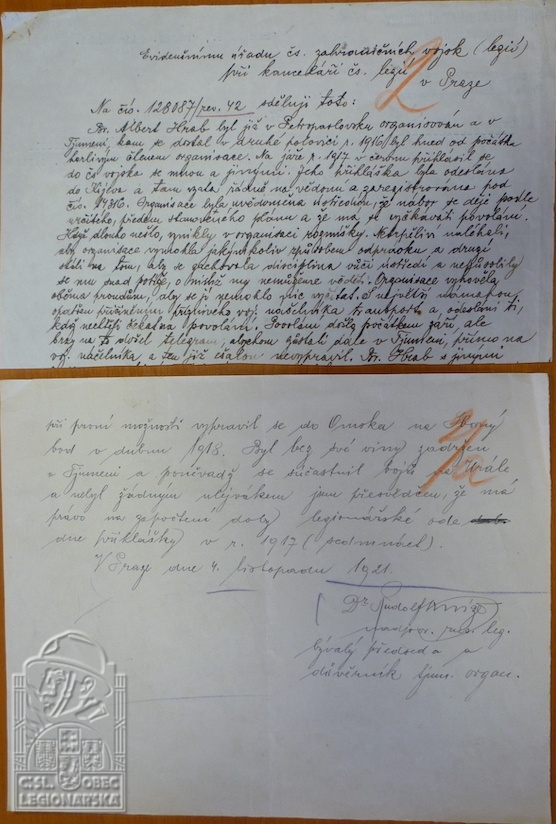 Evidenčnímu úřadu čs. zahraničních vojsk (legií)
při kanceláři čs. legií
v Praze
2
Na čís. 128087/pes. 42 sděluji toto:
Br. Albert Hrab byl již v Petropavlovsku organisován a v
Ťjumeni, kam se dostal v druhé polovici r. 1916 byl hned od počátku
horlivým členem organisace. Na jaře r. 1917 v červnu přihlásil se
do čs vojska se mnou a jinými. Jeho přihláška byla odeslána
do Kijeva a tam vzata řádně na vědomí a zaregistrována pod
čís. Organisace byla uvědoměna noticenou, že nábor se děje podle
určitého, předem stanoveného plánu a že má se vyčkávati povolání.
Když dlouho nešlo, vznikly v organisaci rozmíšky. Netrpěliví naléhali,
aby organisace vymohla jakýmkoliv způsobem odpravku a druzí
stáli na tom, aby se zachovala disciplina vůči ústředí a
se mu snad potíže, o nichž my nemůžeme věděti. Organisace vyhověla
oběma proudům, aby se jí nemohlo nic
opatřen transportu a odeslání ti,
kdož nechtěli čekat na povolání. Povolání došlo počátkem září, ale
brzy na to došel telegram, abychom zůstali dále v Ťjumeni, přímo na
voj. náčelníka a ten již ešalon nevypravil. Br. Hrab s jinými
při první možnosti vypravil se do Omska na
bod v dubnu 1918. Byl bez své viny zadržen
v Ťjumeni a poněvadž se súčastnil bojů na Urále
a nebyl žádným ulejvákem jsem přesvědčen, že má
právo na započtení doby legionářské ode
dne přihlášky v r. 1917 (sedmnáct).
V Praze dne 4. listopadu 1921.
Dr. Rudolf
leg.
bývalý předseda a
důvěrník ťjum. organ.
ČSL. OBEC
LEGIONÁŘSKÁ